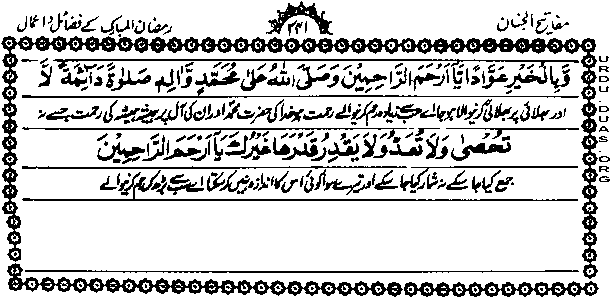 مفاتیح الجنان ۴۴۱ رمضان المبارک کے فضائل و اعمال
وَّبِالْخَيْرِ عَوَّادًا يَّآ اَرْحَمَ الرَّاحِمِيْنَ وَصَلَّى اللهُ عَلٰى مُحَمَّدٍ وَّاٰلِهٖ صَلٰوةً دَآئِمَةً لَّا
اور بھلائی پر بھلائی کرنیوالا ہو جا اے سب سے زیادہ رحم کرنیوالے رحمت ہو خدا کی حضرت محمدؐ اور ان کی آل پر ہمیشہ ہمیشہ کی رحمت جسے نہ
تُحْصٰى وَلَا تُعَدُّ وَلَا يَقْدِرُ قَدْرَهَا غَيْرُكَ يَآ اَرْحَمَ الرَّاحِمِيْنَ
جمع کیا جا سکے نہ شمار کیا جا سکے اور تیرے سوا کوئی اس کا اندازہ نہیں کر سکتا اے سب سے بڑھ کر رحم کرنیوالے
URDU DUAS.ORG